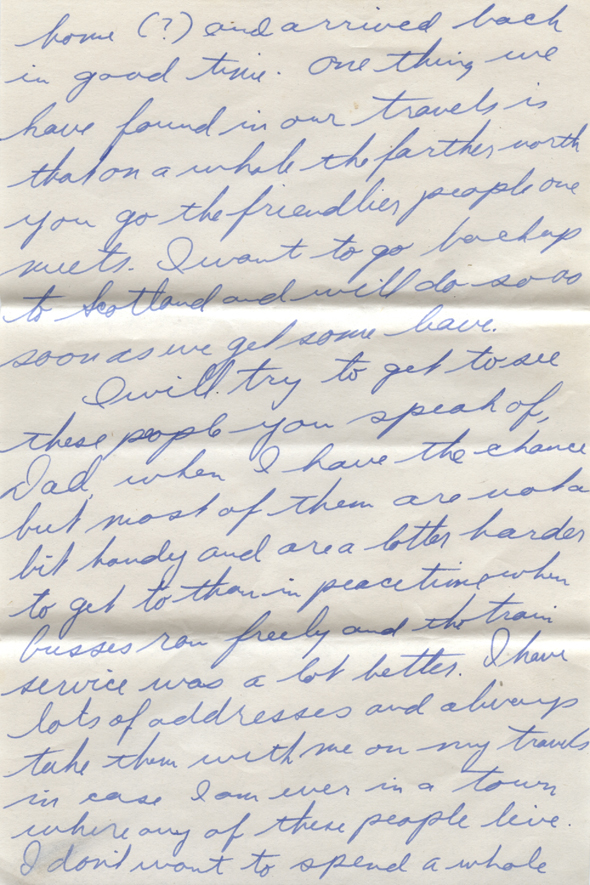 home (?) and arrived back
in good time. One thing we
have found in our travels is
that on a whole the farther north
you go the friendlier people one
meets. I want to go back up
to Scotland and will do so as
soon as we get some leave.
I will try to get to see
these people you speak of,
Dad, when I have the chance
but most of them are not a
bit handy and are a lotter harder
to get to than in peacetime when
busses ran freely and the train
service was a lot better. I have
lots of addresses and always
take them with me on my travels
in case I am ever in a town
where any of these people live.
I don't want to spend a whole